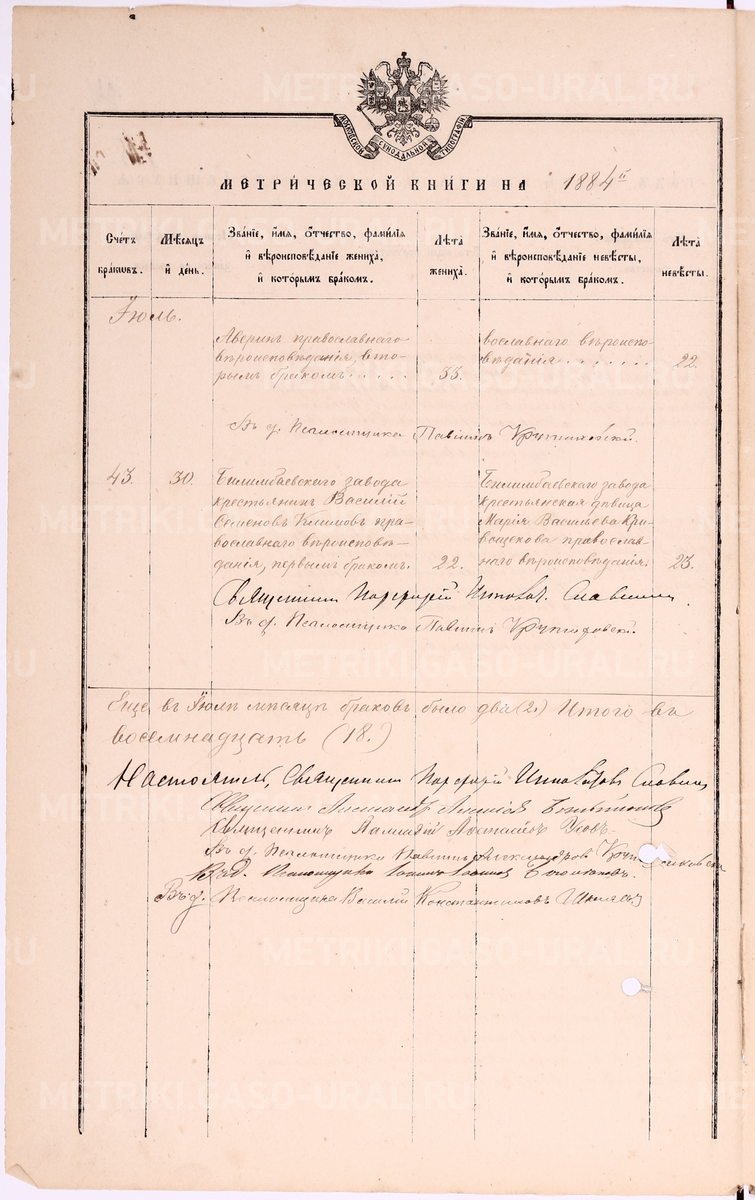 МОСКОВСКОЙ СѴНОДАЛЬНОЙ ТИПОГРАФІИ
МЕТРИ́ЧЕСКОЙ КНИ́ГИ НА 1884й
Сче́тъ бра́ковъ.
Мѣ́сяцъ и҆ де́нь.
Зва́нїе, и҆́мѧ, ѻ҆́тчество, фами́лїѧ и҆ вѣроисповѣ́данїе жениха̀, и҆ кото́рымъ бра́комъ.
Лѣ́та жениха̀.
Зва́нїе, и҆́мѧ, ѻ҆́тчество, фами́лїѧ и҆ вѣроисповѣ́данїе невѣ́сты, и҆ кото́рымъ бра́комъ.
Лѣ́та невѣ́сты.
Іюль.
Аверинъ православнаго
вѣроисповѣданія, вто-
рымъ бракомъ . . . . . 33.
вославнаго вѣроиспо-
вѣданія . . . . . . . 22.
Въ д. Псаломщика Павлинъ
43. 30.
Билимбаевскаго завода
крестьянинъ Василій
Семеновъ Климовъ пра-
вославнаго вѣроисповѣ-
данія, первымъ бракомъ. 22.
Билимбаевскаго завода
крестьянская дѣвица
Марія Васильева Кри-
вощекова православ-
наго вѣроисповѣданія. 23.
Священникъ Порфирій Славнинъ.
Въ д. Псаломщика Павлинъ
Еще въ Іюлѣ мѣсяцѣ браковъ было два (2.) Итого въ
восемнадцать (18.)
Настоятель, Священникъ Порфирій Славнинъ
Священникъ
Священникъ
Въ д. Псаломщика Павлинъ Александровъ
В. д. Псаломщика
Въ д. Псаломщика Василій Константиновъ
METRIKI.GASO-URAL.RU